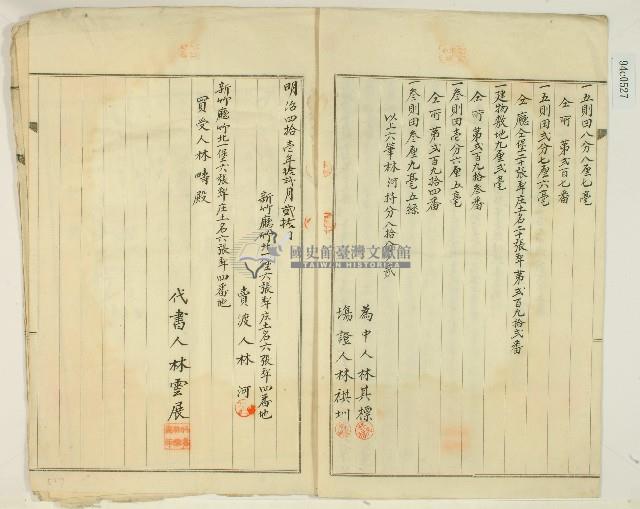 一五則田八分八厘七毫
仝所第弍百七番
一五則田弍分七厘六毫
仝廳仝堡二十張犂庄土名二十張犂第弍百九拾弍番
一建物敷地九厘弍毫
仝所第弍百九拾叁番
一叁則田壱分六厘五毫
仝所第弍百九拾四番
一叁則田叁厘九毫五絲
以上六筆林河持分八拾分之弍
為中人林其標
塲證人林祺圳
明治四拾壱年拾弍月貳拾日
新竹廳竹北一堡六張犂庄土名六張犂四番地
賣渡人林河
新竹廳竹北一堡六張犂庄土名六張犂四番地
買受人林疇殿
代書人林雲展
國史館臺灣文獻館
TAIWAN HISTORICA
94c0527